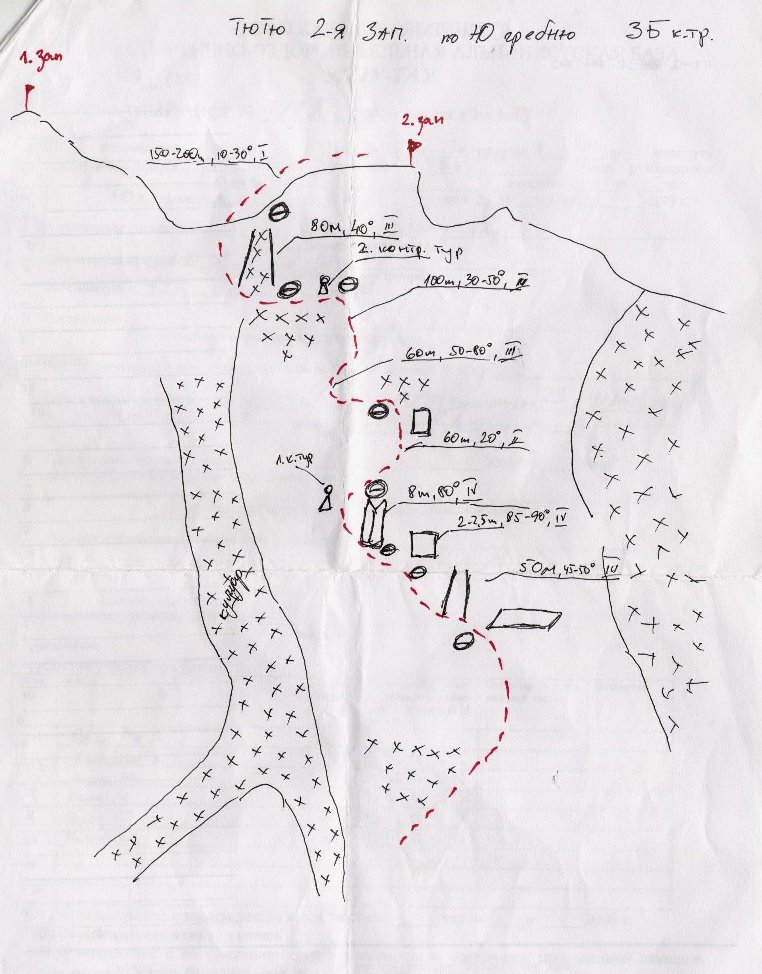 ТЮТЮ 2-я Зап. по Ю гребню 3Б к.тр.
1. Зап
2. зап
150-200m, 10-30°, I
80м, 40°, III
2. контр. тур
100m, 30-50°, III
60m, 50-80°, III
60m, 20°, II
1. к.тур
8m, 80°, IV
2-2,5m, 85-90°, IV
50м, 45-50° III
кулуар